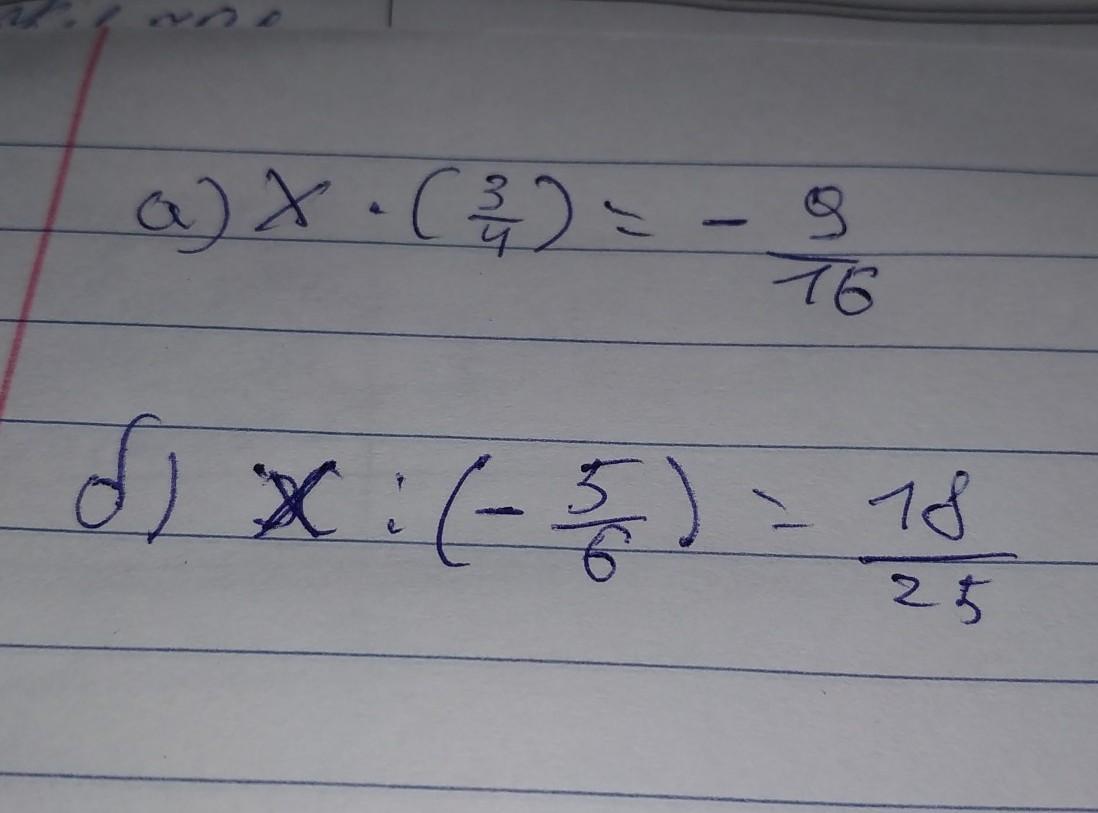 а) X · (3/4) = - 9/16
б) x : (- 5/6) = 18/25